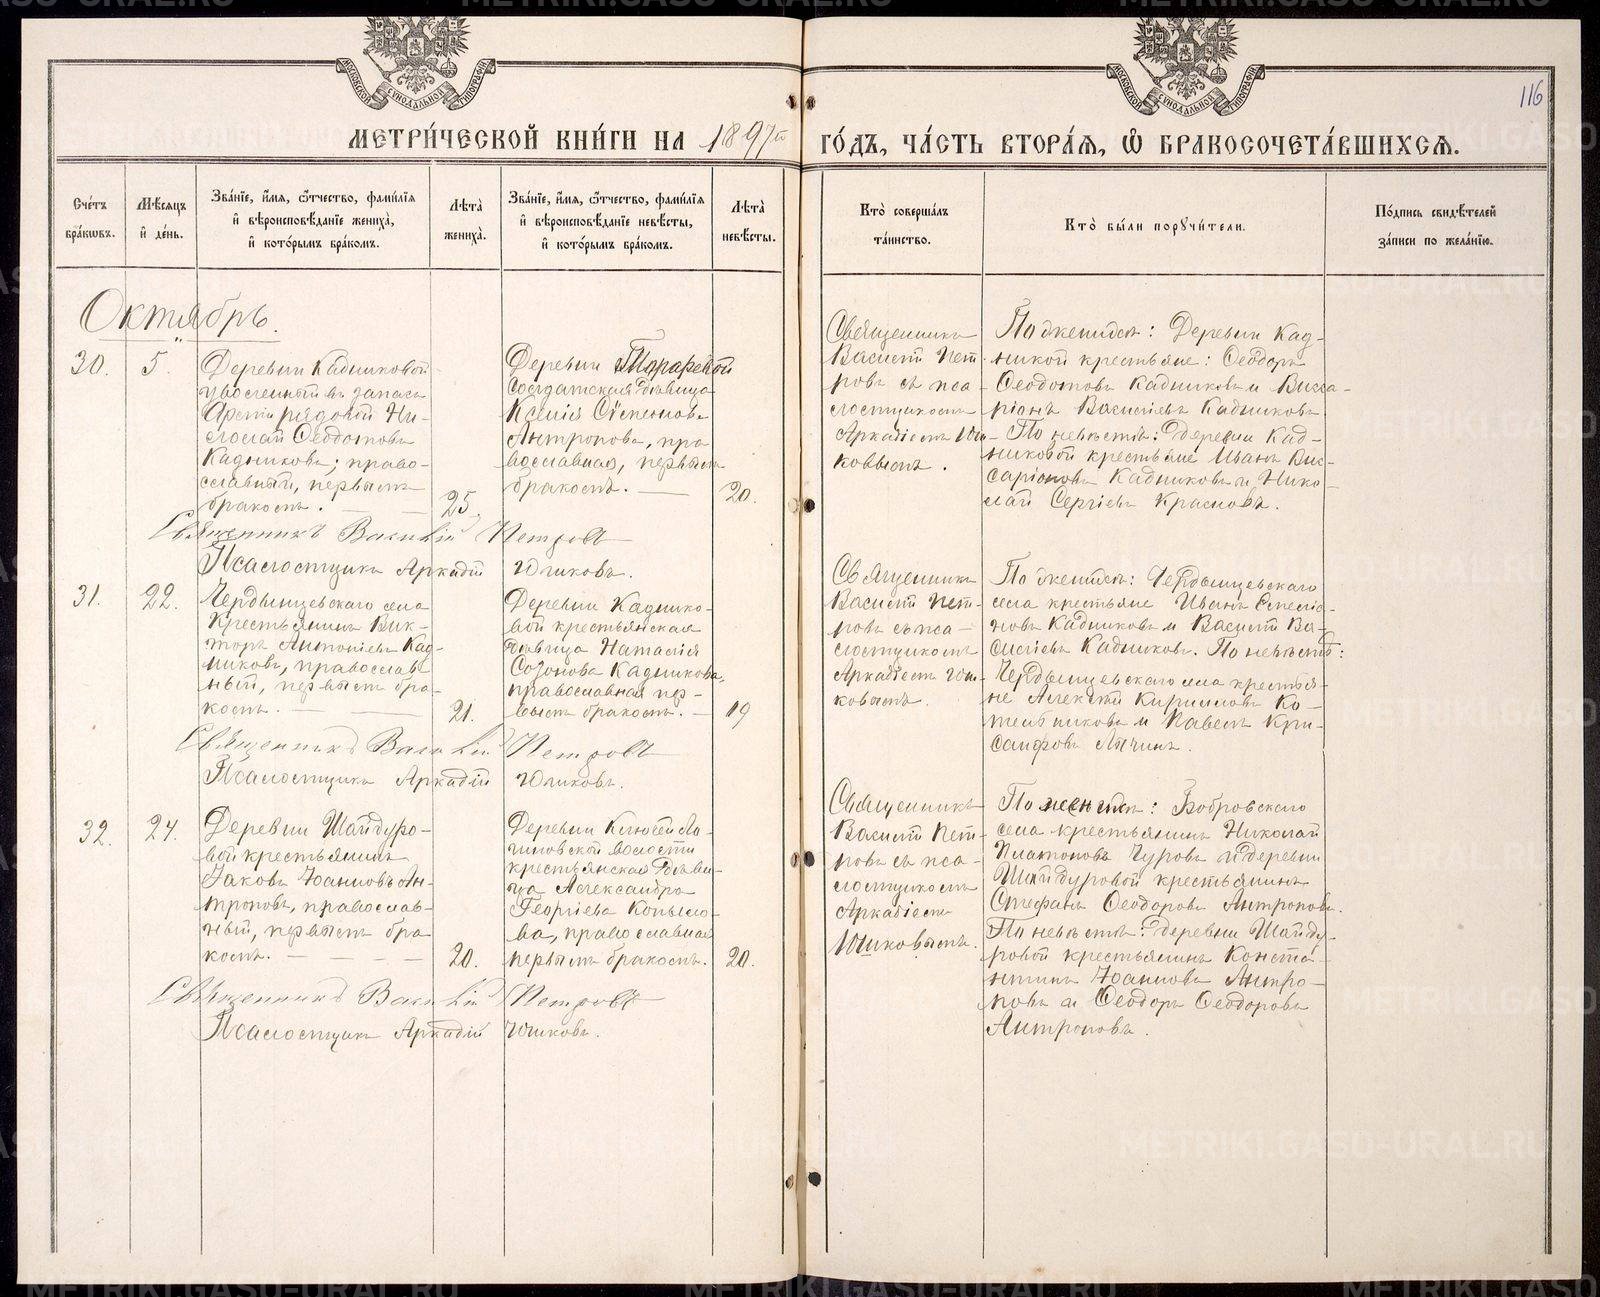 МОСКОВСКОЙ СУНОДАЛЬНОЙ ТИПОГРАФІИ
МОСКОВСКОЙ СУНОДАЛЬНОЙ ТИПОГРАФІИ
116
МЕТРИ́ЧЕСКОЙ КНИ́ГИ НА 1897й ГО́ДЪ, ЧА́СТЬ ВТОРА́Я, Ѽ БРАКОСОЧЕТА́ВШИХСЯ.
Сче́тъ
бра́кωвъ.
Мѣ́сяцъ
и҆ де́нь.
Зва́нїе, и҆́мя, ѻ҆́тчество, фами́лїя
и҆ вѣроисповѣ́данїе жениха̀,
и҆ кото́рымъ бра́комъ.
Лѣ́та̀
жениха̀.
Зва́нїе, и҆́мя, ѻ҆́тчество, фами́лїя
и҆ вѣроисповѣ́данїе невѣ́сты,
и҆ кото́рымъ бра́комъ.
Лѣ́та̀
невѣ́сты.
Кто̀ соверша́лъ
та́инство.
Кто̀ бы́ли порꙋчи́тели.
По́дпись свидѣ́телей
за́писи по жела́нїю.
Октябрь.
30.
5.
Деревни Кадниковой
уволенный въ запасъ
Арміи рядовой Ни-
колай Ѳеодотовъ
Кадниковъ, право-
славный, первымъ
бракомъ.
25.
Деревни
солдатская дѣвица
Ксенія Стефанова
Антропова, пра
вославная, первымъ
бракомъ.
20.
Священникъ
Василій Пет-
ровъ съ пса-
ломщикомъ
Аркадіемъ Юш-
ковымъ.
По женихѣ: Деревни Кад-
никовой крестьяне: Ѳеодоръ
Ѳеодотовъ Кадниковъ и Висса-
ріонъ Василіевъ Кадниковъ.
По невѣстѣ: деревни Кад-
никовой крестьяне Иванъ Вис-
саріоновъ Кадниковъ и Нико-
лай Сергіевъ Красновъ.
Священникъ Василій Петровъ
Псаломщикъ Аркадій Юшковъ.
31.
22.
Чердынцевскаго села
Крестьянинъ Вик-
торъ Антоніевъ Кад-
никовъ, православ
ный, первымъ бра-
комъ.
21.
Деревни Каднико-
вой крестьянская
дѣвица Наталія
Созонова Кадникова,
православная пер-
вымъ бракомъ.
19
Священникъ
Василій Пет-
ровъ съ пса-
ломщикомъ
Аркадіемъ Юш-
ковымъ.
По женихѣ: Чердынцевскаго
села крестьяне Иванъ
Кадниковъ и Василій Ва-
силіевъ Кадниковъ. По невѣстѣ:
Чердынцевскаго села крестья-
не Алексѣй Кирилловъ Ко-
тельниковъ и Павелъ
Священникъ Василій Петровъ
Псаломщикъ Аркадій Юшковъ.
32.
24.
Деревни Шайдуро-
вой крестьянинъ
Іаковъ Іоанновъ Ан-
троповъ, православ-
ный, первымъ бра
комъ.
20.
Деревни
волости
крестьянская дѣви-
ца Александра
Георгіева Копыло-
ва, православная
первымъ бракомъ.
20.
Священникъ
Василій Пет-
ровъ съ пса-
ломщикомъ
Аркадіемъ
Юшковымъ.
По женихѣ: Бобровскаго
села крестьянинъ Николай
Платоновъ Чуровъ и деревни
Шайдуровой крестьянинъ
Стефанъ Ѳеодоровъ Антроповъ.
По невѣстѣ: деревни Шайду-
ровой крестьянинъ Конста-
нтинъ Іоанновъ Антро-
повъ и Ѳеодоръ Ѳеодоровъ
Антроповъ.
Священникъ Василій Петровъ
Псаломщикъ Аркадій Юшковъ.
METRIKI.GASO-URAL.RU